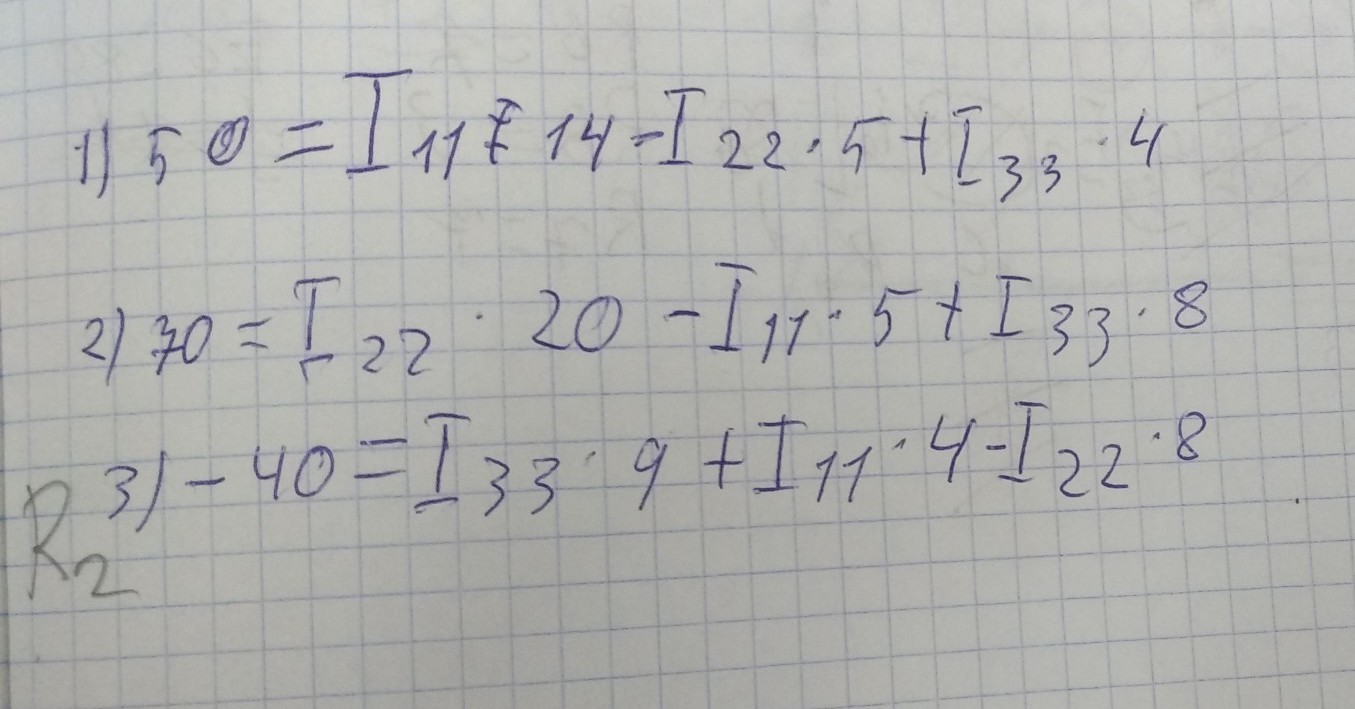 1) 50 = I₁₁ · 14 - I₂₂ · 5 + I₃₃ · 4
2) 70 = I₂₂ · 20 - I₁₁ · 5 + I₃₃ · 8
3) - 40 = I₃₃ · 9 + I₁₁ · 4 - I₂₂ · 8
R₂